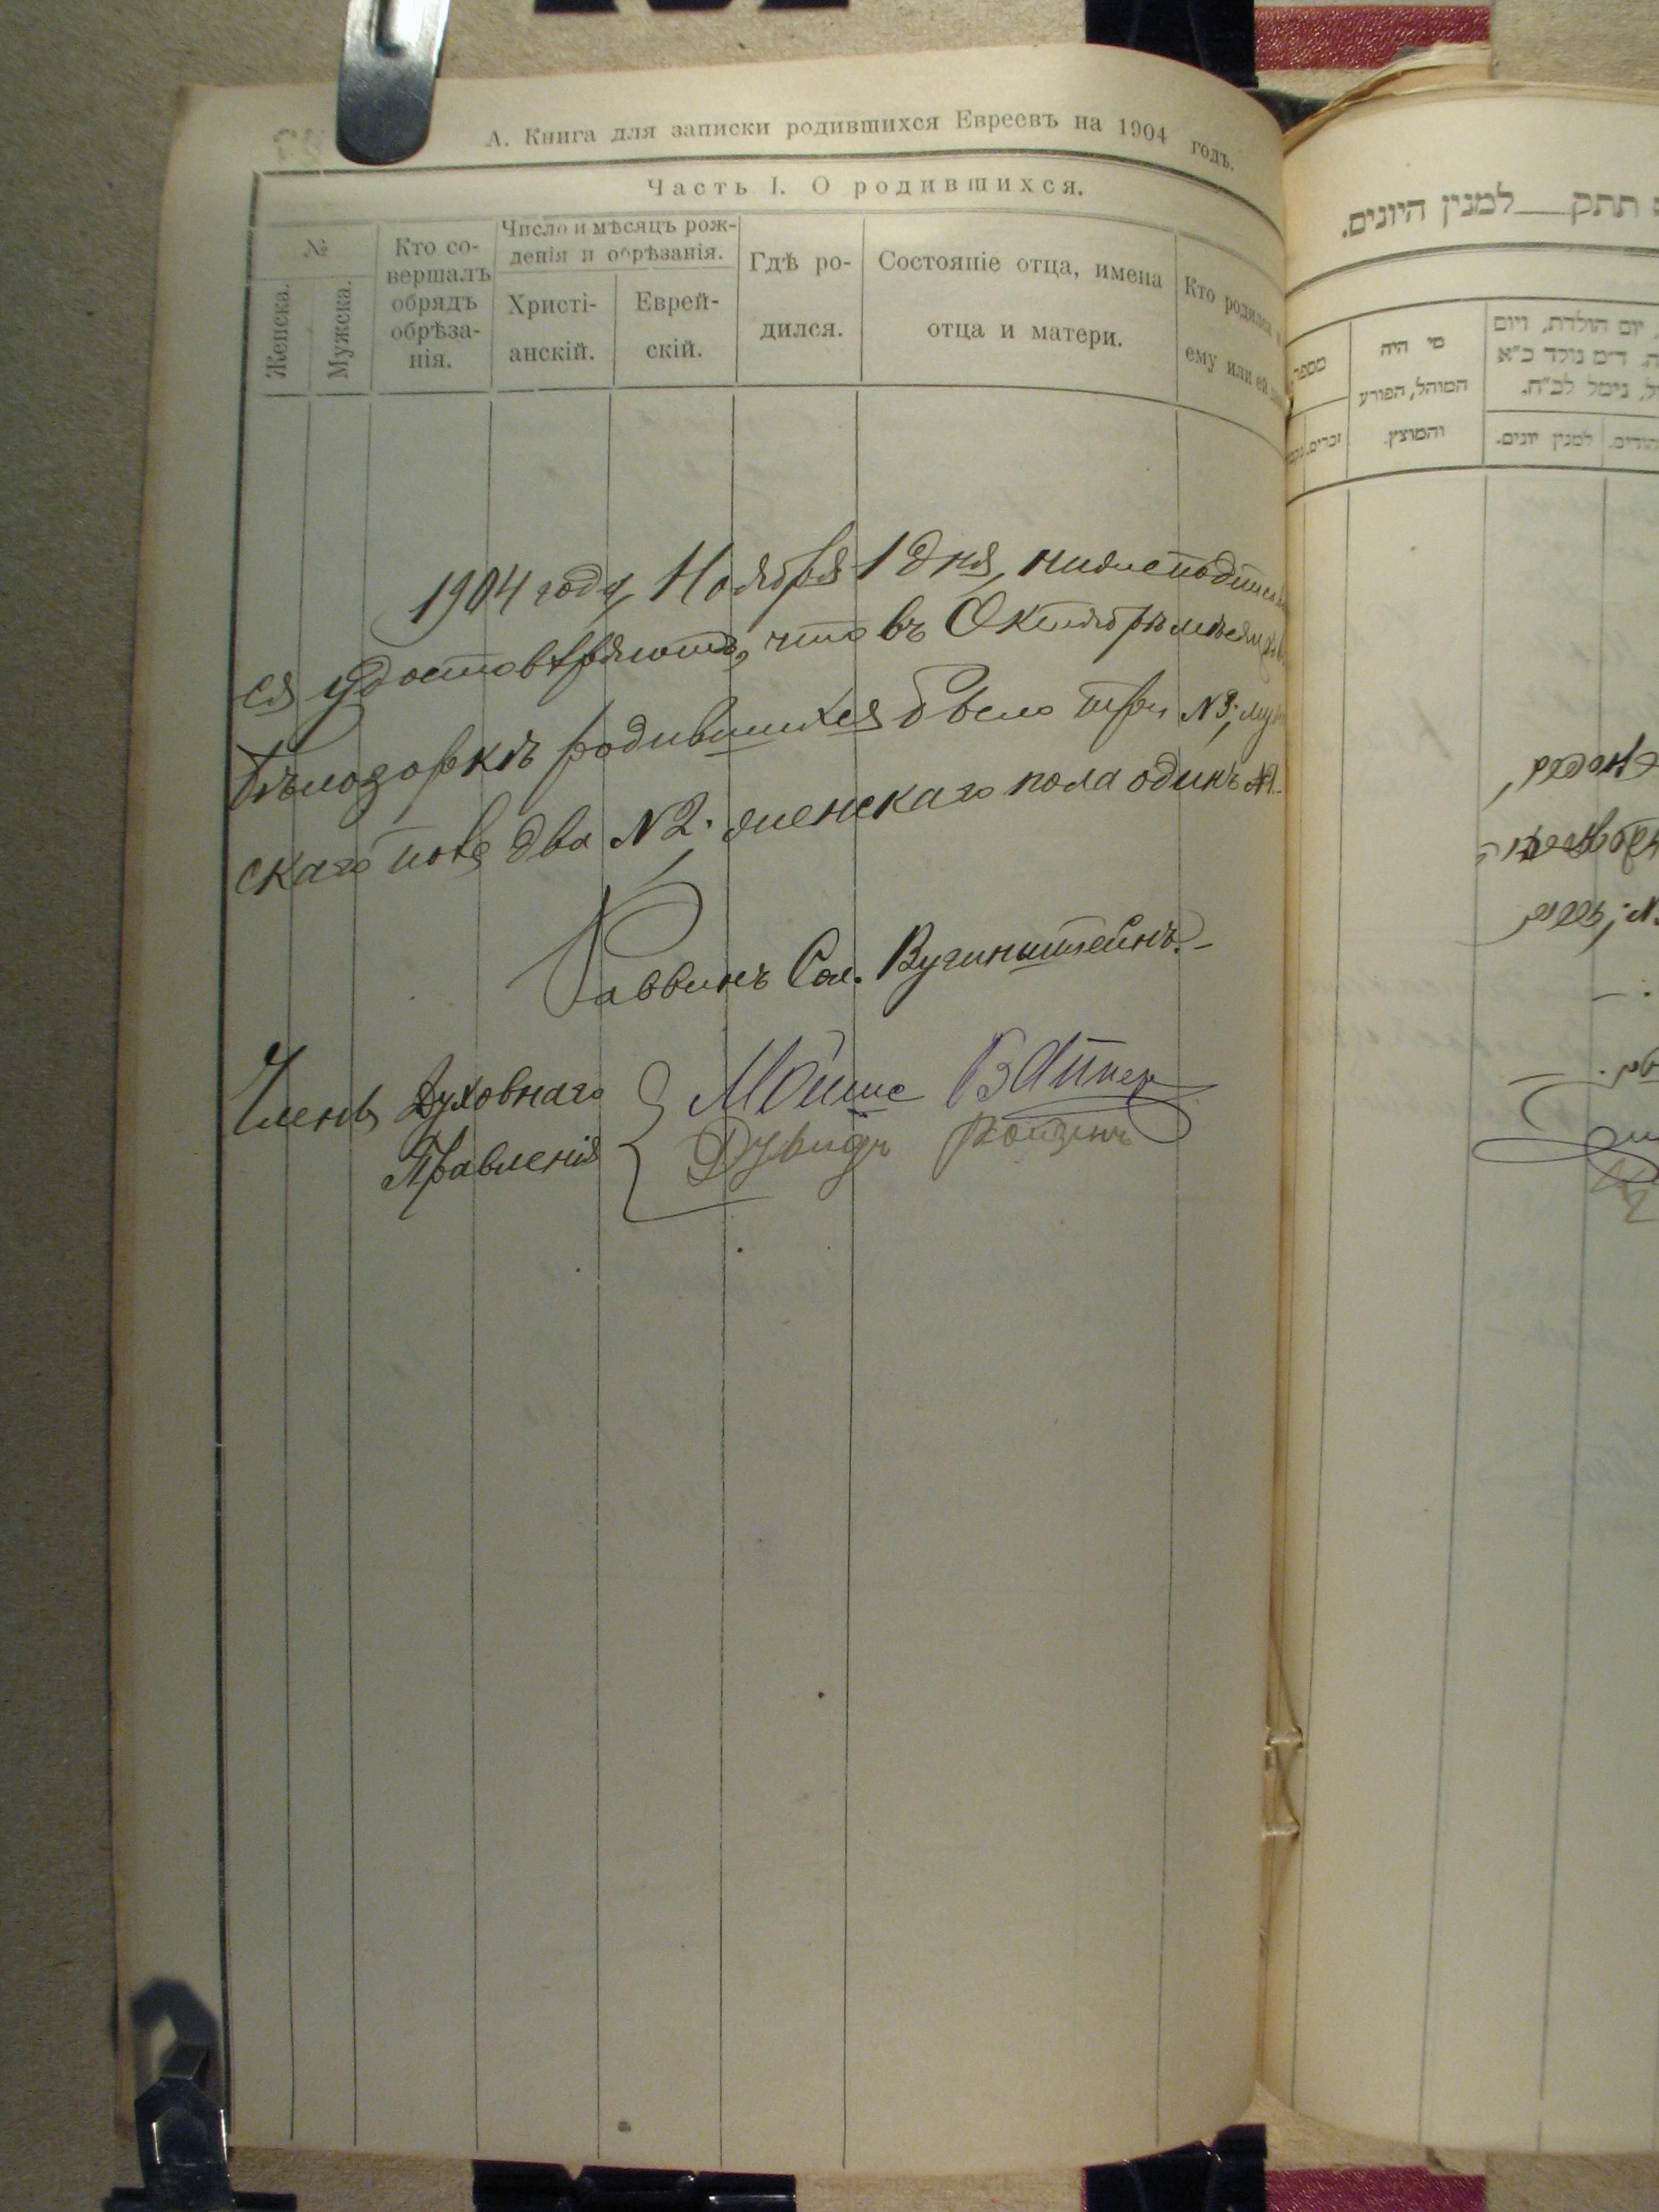 А. Книга для записки родившихся Евреевъ на 1904 годъ.
Часть I. О родившихся.
№
Женска.
Мужска.
Кто со-
вершалъ
обрядъ
обрѣза-
нія.
Число и мѣсяцъ рож-
денія и обрѣзанія.
Христі-
анскій.
Еврей-
скій.
Гдѣ ро-
дился.
Состояніе отца, имена
отца и матери.
Кто родился
ему или ей
1904 года, Ноября 1 дня, нижеподписа
ся удостовѣряютъ, что въ Октябрѣ мѣсяцѣ
Бѣлозоркѣ родившихся было три №3; муж
скаго пола два №2; женскаго пола одинъ №1.-
Раввинъ Сол. Вугинштейнъ.-
Члены Духовнаго
Правленія
Мойше
Дувидъ
למנין היונים.
תתק
מספר
זכרים.
מי היה
המוהל, הפורע
והמוצץ.
יום הולדת, ויום
ד״מ נולד כ״א
נימל לכ״ח.
למנין יונים.